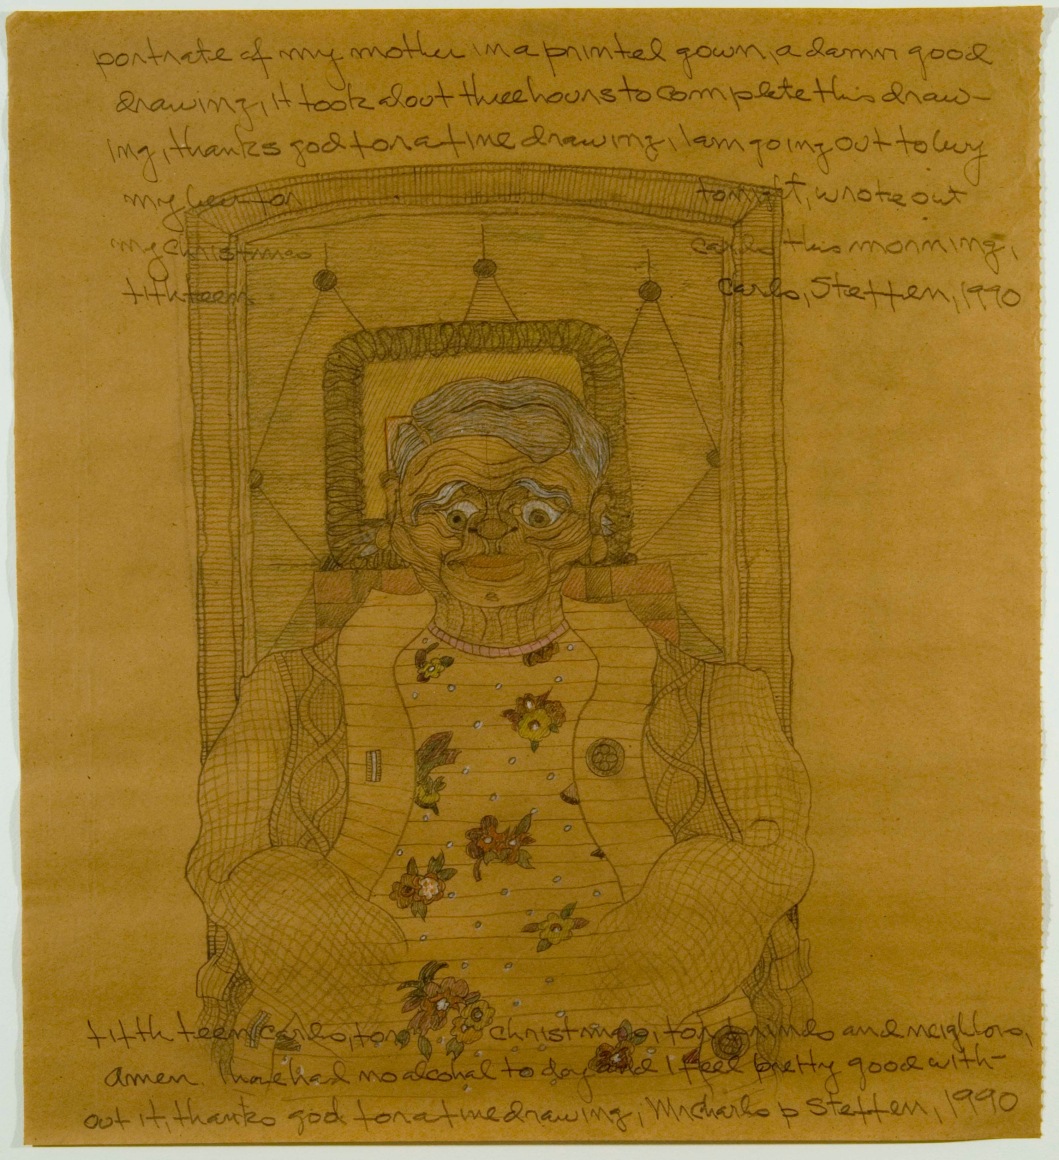 portrate of my mother in a printed gown, a damn good
drawing, it took about three hours to complete this draw-
ing, thanks god for a fine drawing, I am going out to buy
my beer for tonight, wrote out
my christmas cards this morning,
fifthteen cards, Steffen, 1990
fifth teen cards, for christmas, for frinds and neighbors,
amen. I have had no alcohal to day and I feel pretty good with-
out it, thanks god for a fine drawing, Mr Charles p Steffen, 1990